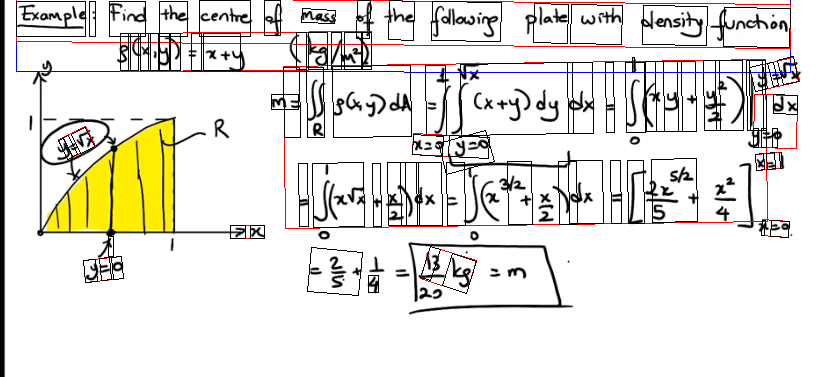 Example: Find the centre of mass of the following plate with density function
ρ(x,y) = x+y (kg/m²)
m = ∬_R ρ(x,y) dA = ∫_{x=0}^{1} ∫_{y=0}^{√x} (x+y) dy dx = ∫_0^1 (xy + y²/2) |_{y=0}^{y=√x} dx
= ∫_0^1 (x√x + x/2) dx = ∫_0^1 (x^{3/2} + x/2) dx = [2x^{5/2}/5 + x²/4]_{x=0}^{x=1}
= 2/5 + 1/4 = 13/20 kg = m
y
1
y=√x
R
1
x
y=0